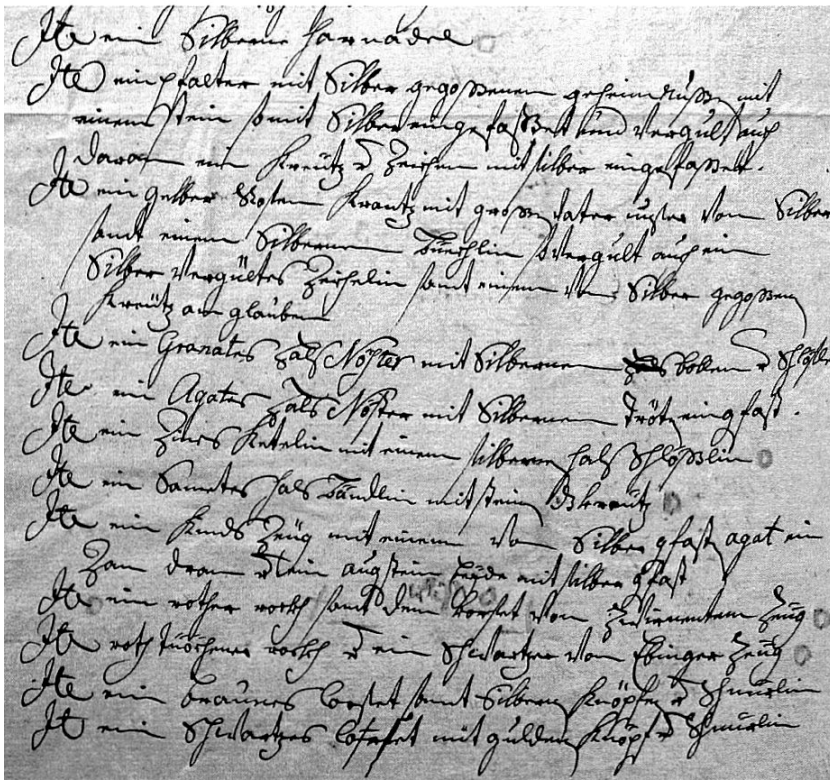 Ite ein Silberne Harnadel
Ite ein psalter mit Silber gegossenem geheimnussen mit
einem stein so mit Silber eingefasset und vergult auch
daran ein Kreütz d Zeichen mit silber eingefasset.
Ite ein gelber Rosen Krantz mit grossen vater unser von Silber
samt einem Silbernen büechlin so vergult auch ein
Silber vergültes Zeichelin samt einem von Silber gegossen
Kreütz am glauben
Ite ein Granates Hals Nöster mit Silbernen bollen d Schlösle
Ite ein Agates Hals Nöster mit Silbernem trôt eingfast.
Ite ein Ketelin mit einem silbernen hals Schlösslin
Ite ein Sametes hals bändlin mit stein Kreütz
Ite ein Kinds Zeüg mit einem von Silber gfast agat ein
Zan dran ein augstein beyde mit silber gfast
Ite ein rother rockh samt dem korset von Zeüg
Ite roth tuöchener rockh d ein Schwartzer von Ebinger Zeüg
Ite ein braunes korset samt Silbern Knöpfen d Schnürlin
Ite ein Schwartzes korset mit gulden Knöpf d Schnürlin